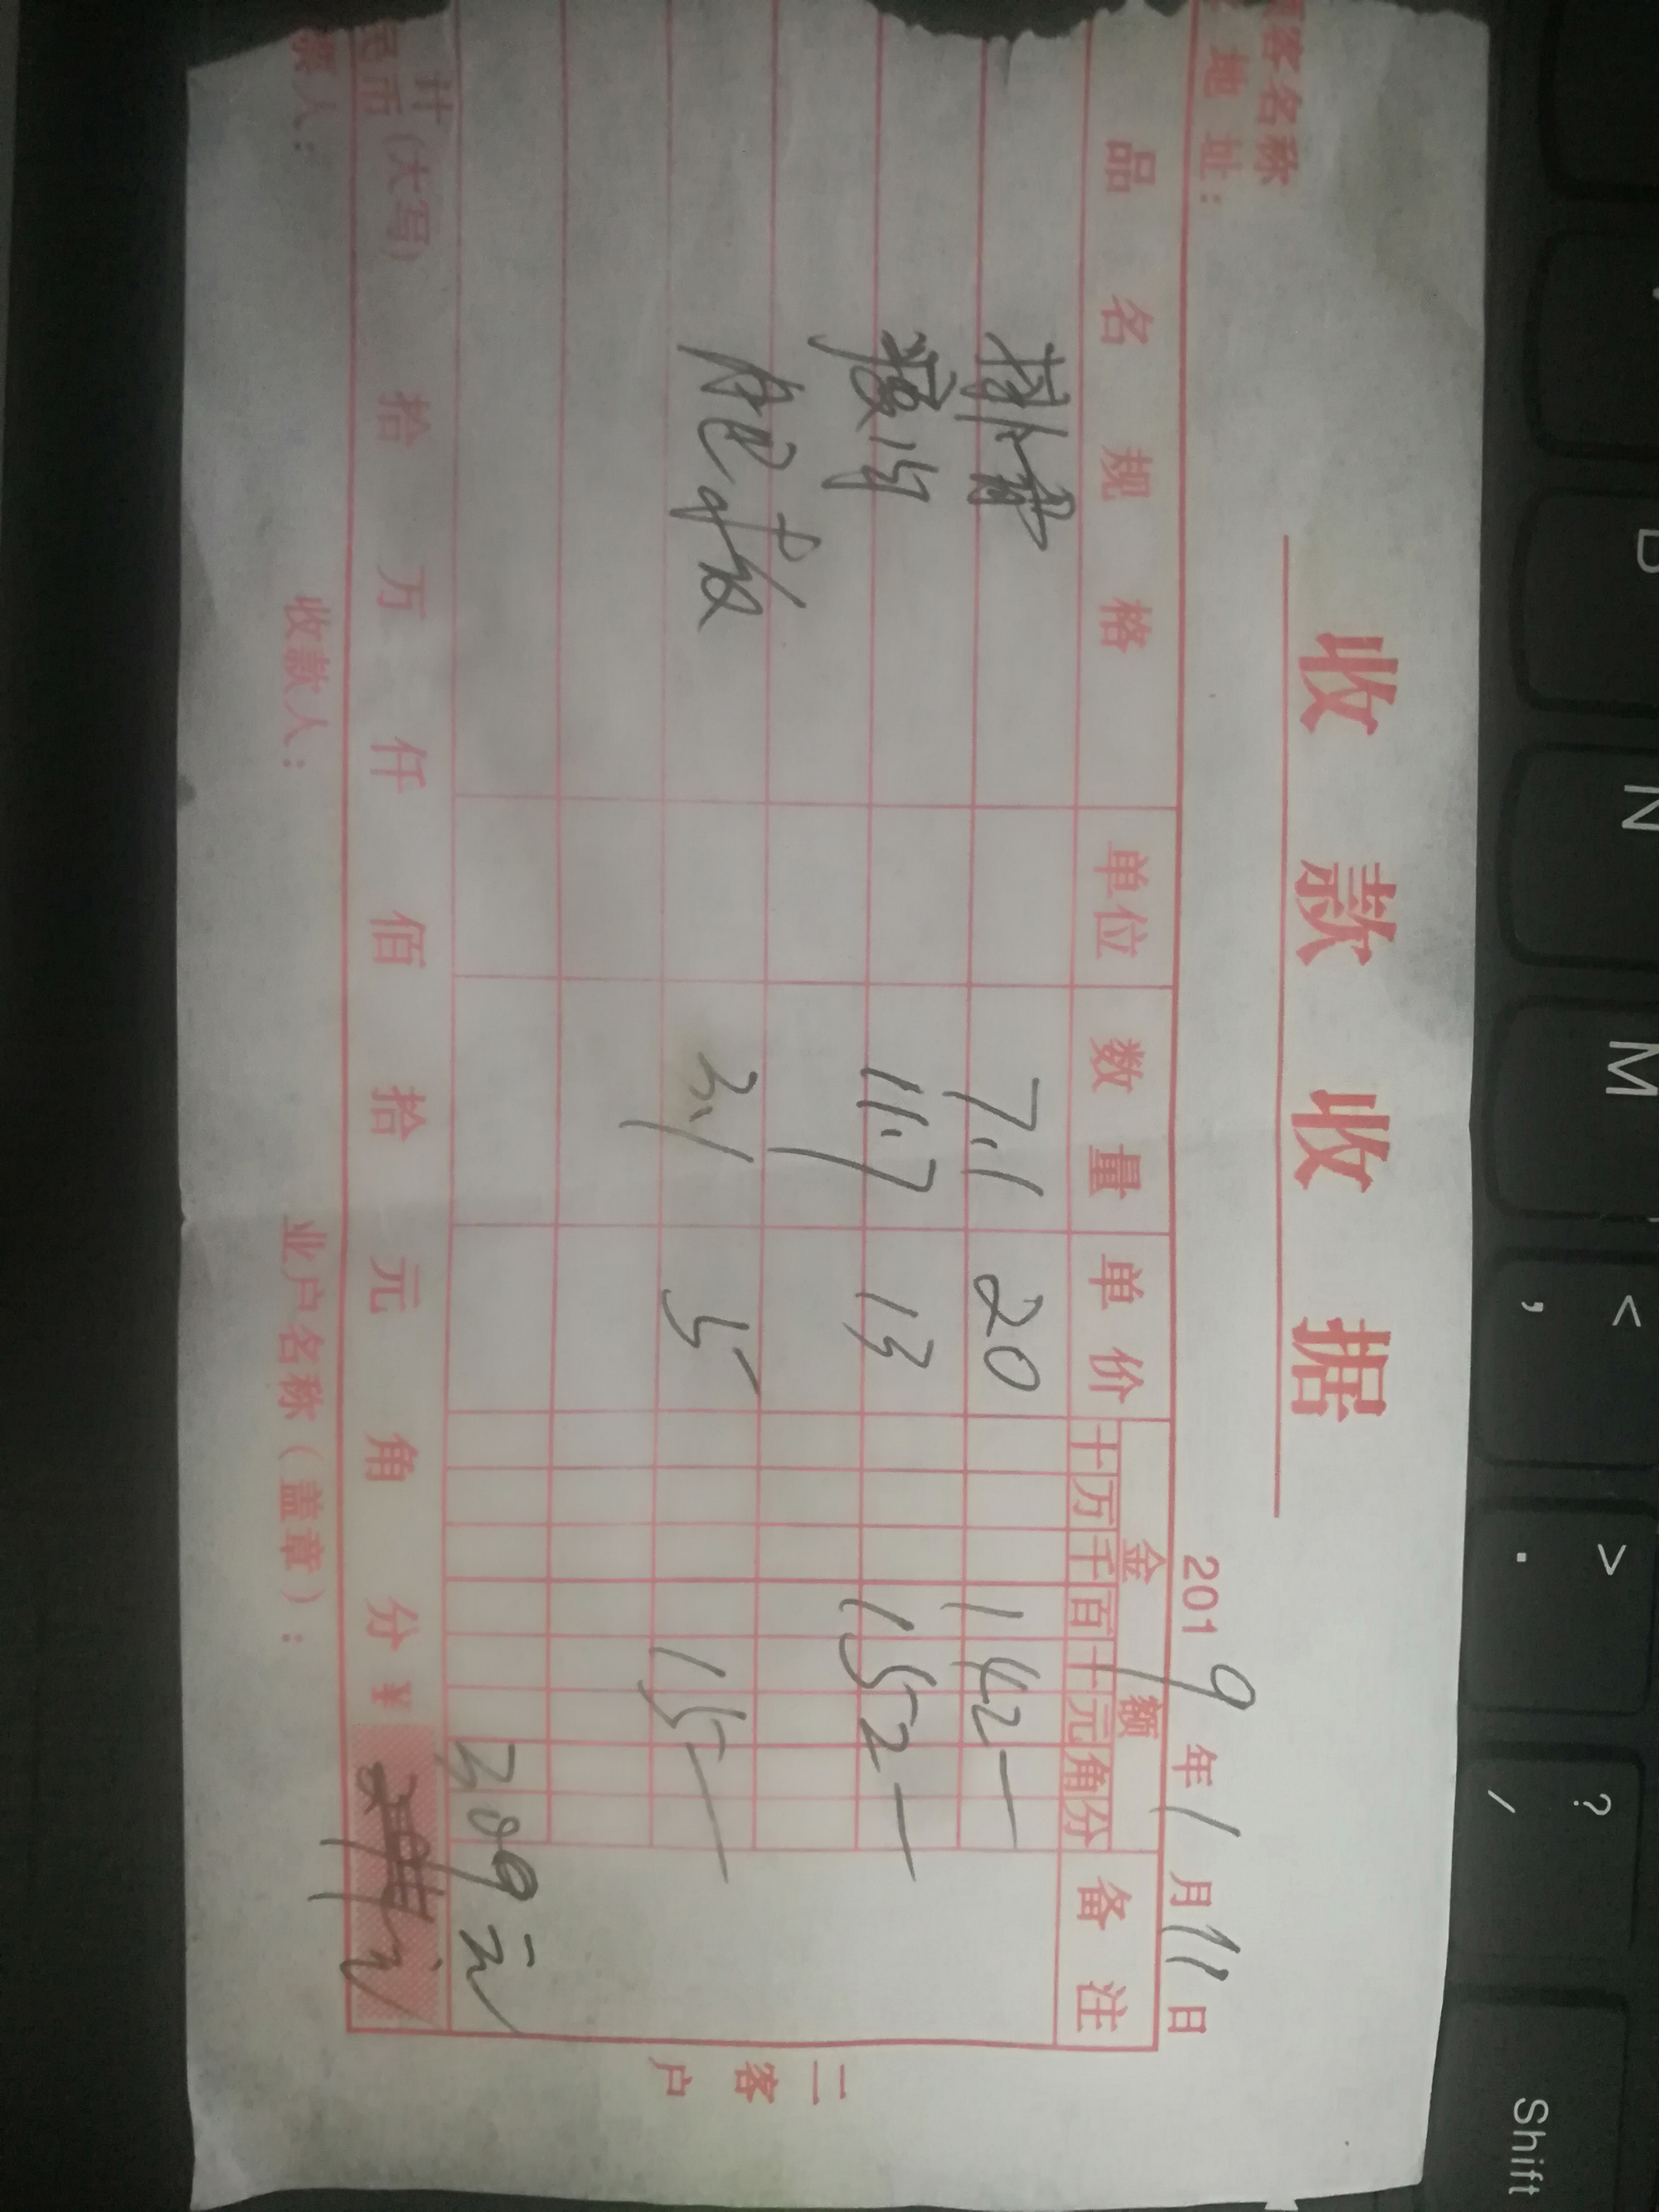 B N M < , > . ? / Shift
收款收据
客名称
地址：
2019年1月11日
品名规格 单位 数量 单价 金额 备注
十 万 千 百 十 元 角 分
排骨 7.1 20 142—
瘦肉 11.7 13 152—
肥板 3.1 5 15—
二客户
309元
计 (大写) 拾 万 仟 佰 拾 元 角 分 ¥ 294元
民币
票人： 收款人： 业户名称（盖章）：